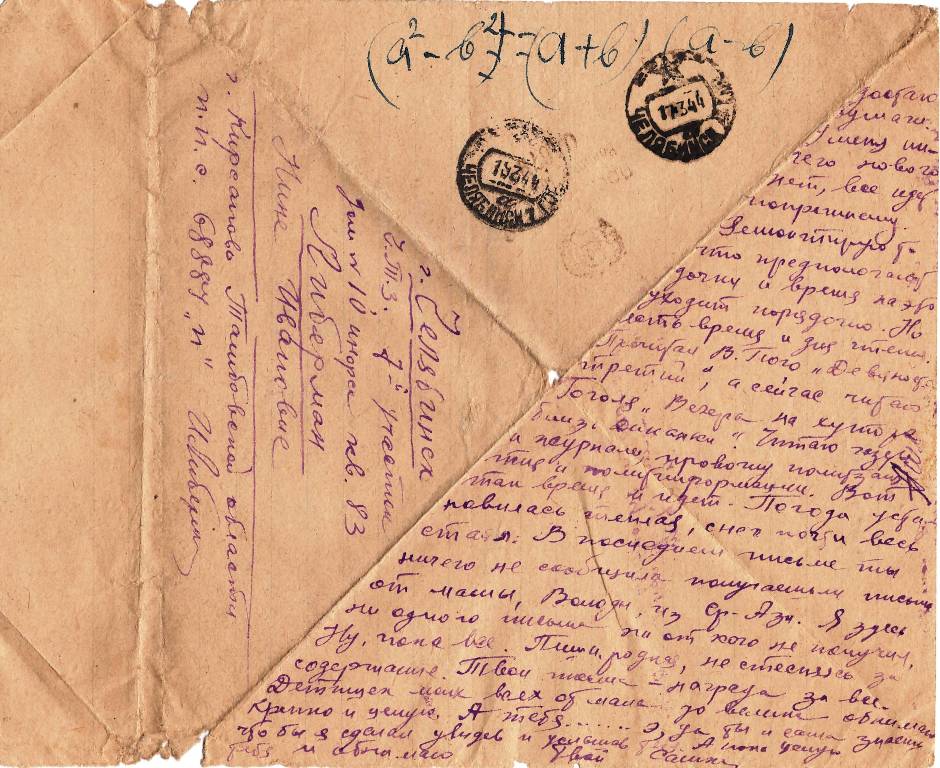 (a² - b²) = (a+b) (a-b)
ЧЕЛЯБИНСК
17344
ЧЕЛЯБИНСК
15344
г. Челябинск
Ч.Т.З. 7й участок
дом № 10 индекс кв. 83
Либерман
Нине Ивановне
г. Кирсанов Тамбовской области
п.п.с. 68884 "п"
достаю
бумагу.
У меня ни-
чего нового
нет, все идет
попрежнему.
Демонтирую
что предполагает
и время на это
уходит порядочно. Но
есть время и для чтения.
Прочитал В. Гюго "Девяносто
третий", а сейчас читаю
Гоголя "Вечера на хуторе
близ Диканьки". Читаю газеты
и журналы, провожу политзаня-
тия и политинформации. Вот
так время и идет. Погода уста-
новилась теплая, снег почти весь
стаял. В последнем письме ты
ничего не сообщила получаешь ли письма
от мамы, Володи, из Ср-Азии. Я здесь
ни одного письма ни от кого не получил.
Ну, пока все. Пиши, родная, не стесняясь за
содержание. Твои письма - награда за все.
Детишек моих всех от мала до велика обнимаю
крепко и целую. А тебя...... э, да ты и сама знаешь
что бы я сделал увидев и услышав тебя. А пока целую
тебя и обнимаю Твой Сашка